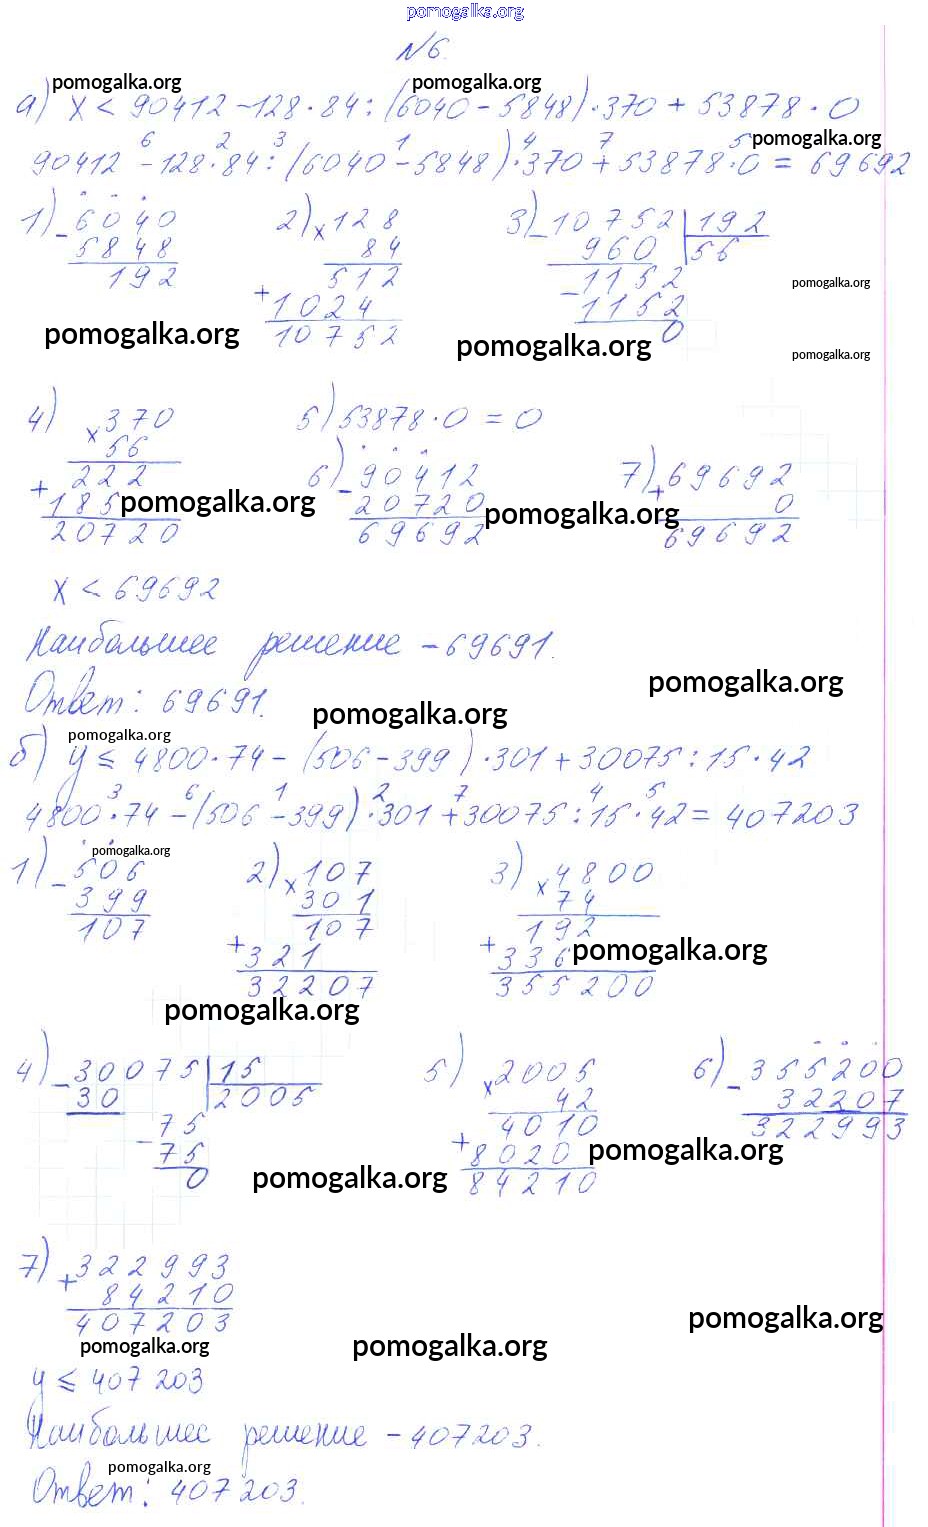 pomogalka.org
№6.
pomogalka.org pomogalka.org
а) x < 90412 - 128 · 84 : (6040 - 5848) · 370 + 53878 · 0
6 2 3 1 4 7 5 pomogalka.org
90412 - 128 · 84 : (6040 - 5848) · 370 + 53878 · 0 = 69692
1) - 6040 2) × 128 3) - 10752 | 192
5848 84 960 56
192 512 - 1152
+ 1024 1152
10752 0
pomogalka.org
pomogalka.org pomogalka.org
pomogalka.org
4) × 370 5) 53878 · 0 = 0
56
+ 222 6) - 90412 7) + 69692
185 20720 0
20720 69692 69692
pomogalka.org pomogalka.org
x < 69692
Наибольшее решение - 69691.
Ответ: 69691.
pomogalka.org
pomogalka.org
pomogalka.org
б) y ≤ 4800 · 74 - (506 - 399) · 301 + 30075 : 15 · 42
3 6 1 2 7 4 5
4800 · 74 - (506 - 399) · 301 + 30075 : 15 · 42 = 407203
pomogalka.org
1) - 506 2) × 107 3) × 4800
399 301 74
107 107 192
+ 321 + 336
32207 355200
pomogalka.org
pomogalka.org
4) - 30075 | 15 5) × 2005 6) - 355200
30 2005 42 32207
- 75 4010 322993
75 + 8020
0 84210
pomogalka.org
pomogalka.org
7) + 322993
84210
407203
pomogalka.org
pomogalka.org pomogalka.org
y ≤ 407 203
Наибольшее решение - 407203.
pomogalka.org
Ответ: 407 203.